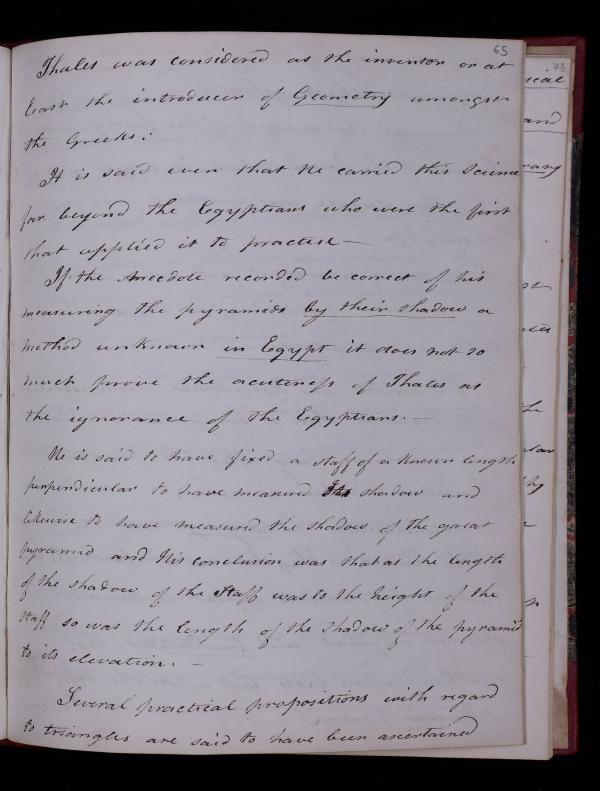 65
Thales was considered as the inventor or at
least the introducer of Geometry amongst
the Greeks:
It is said even that he carried this Science
far beyond the Egyptians who were the first
that applied it to practise —
If the Anecdote recorded be correct of his
measuring the pyramids by their shadow a
method unknown in Egypt it does not so
much prove the acuteness of Thales as
the ignorance of the Egyptians. —
He is said to have fixed a staff of a known length
perpendicular to have measured its shadow and
likewise to have measured the shadow of the great
pyramid and his conclusion was that as the length
of the shadow of the Staff was to the height of the
staff so was the length of the shadow of the pyramid
to its elevation. —
Several practical propositions with regard
to triangles are said to have been ascertained
and